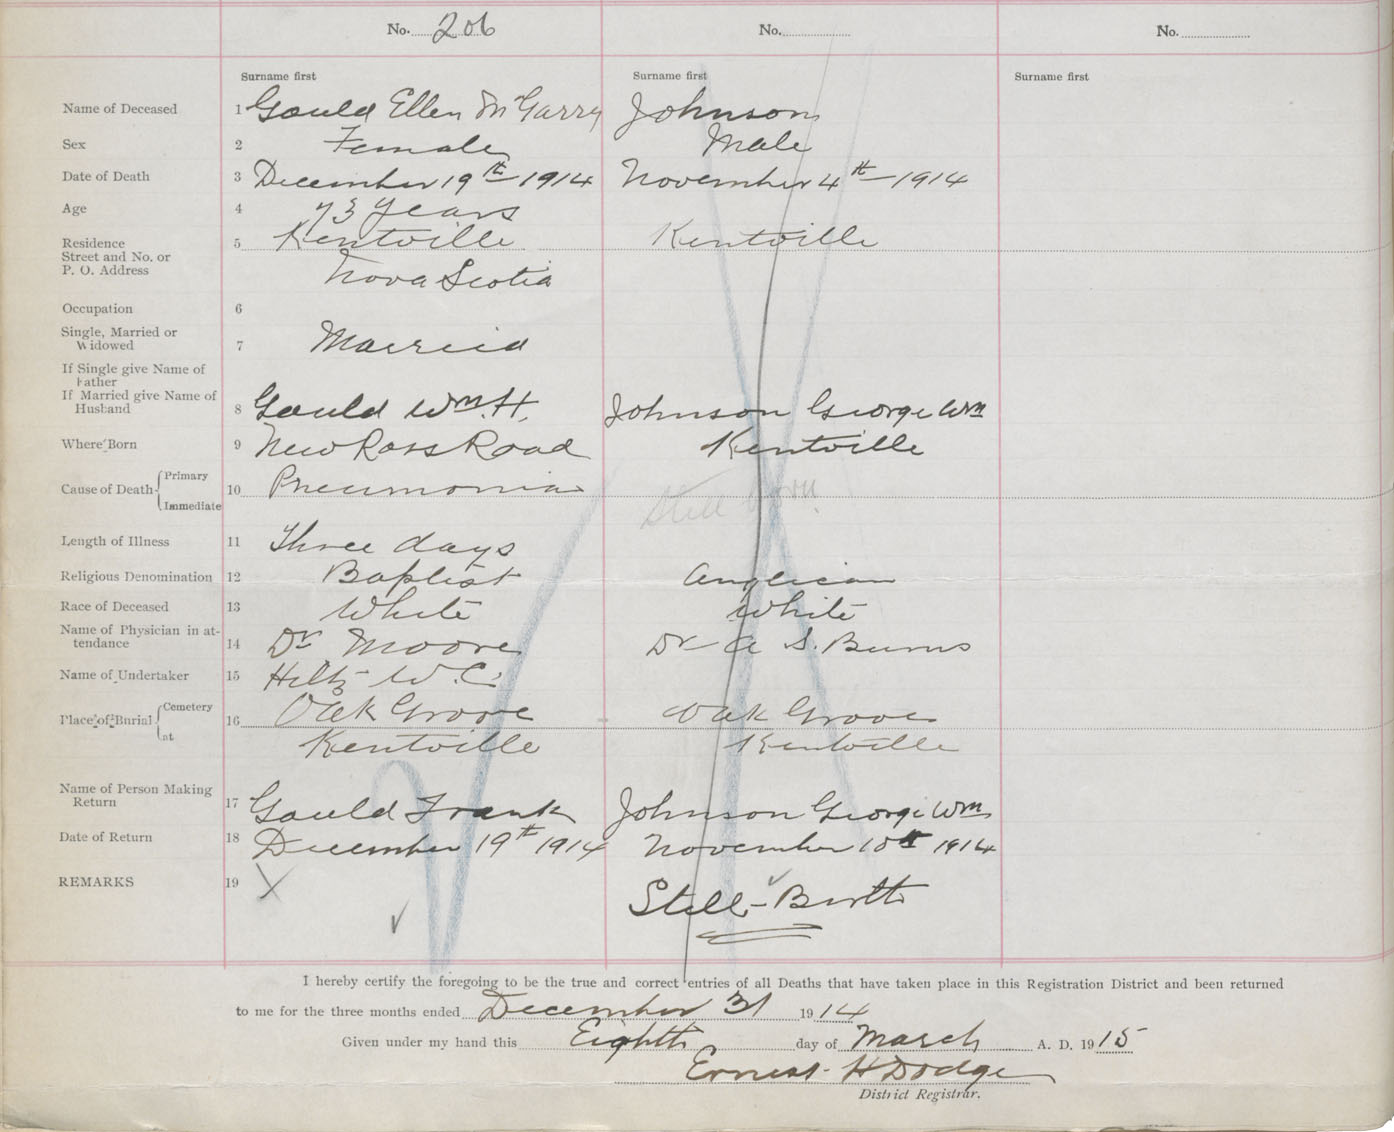 No. 206 No. No.
Surname first Surname first Surname first
Name of Deceased 1 Gould Ellen McGarry Johnson
Sex 2 Female Male
Date of Death 3 December 19th 1914 November 4th 1914
Age 4 73 years
Residence 5 Kentville Kentville
Street and No. or
P. O. Address Nova Scotia
Occupation 6
Single, Married or
Widowed 7 Married
If Single give Name of
Father
If Married give Name of
Husband 8 Gould Wm. H. Johnson George Wm
Where Born 9 New Ross Road Kentville
Primary
Cause of Death 10 Pneumonia Still born
Immediate
Length of Illness 11 Three days
Religious Denomination 12 Baptist Anglican
Race of Deceased 13 White White
Name of Physician in at-
tendance 14 Dr Moore Dr A S. Burns
Name of Undertaker 15 Hiltz W. C.
Cemetery
Place of Burial 16 Oak Grove Oak Grove
at Kentville Kentville
Name of Person Making
Return 17 Gould Frank Johnson George Wm
Date of Return 18 December 19th 1914 November 10th 1914
REMARKS 19 X Still-Birth
I hereby certify the foregoing to be the true and correct entries of all Deaths that have taken place in this Registration District and been returned
to me for the three months ended December 31 1914
Given under my hand this Eighth day of March A. D. 1915
Ernest H Dodge
District Registrar.